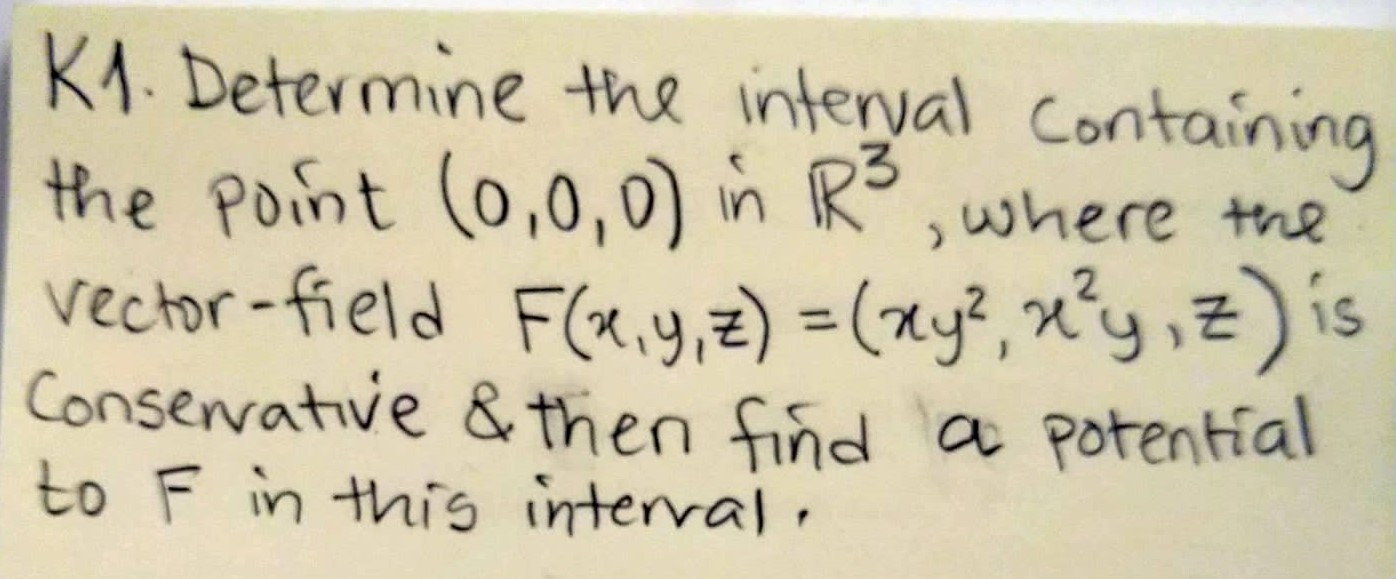 K1. Determine the interval containing
the point (0,0,0) in ℝ³, where the
vector-field F(x,y,z) = (xy², x²y, z) is
Conservative & then find a potential
to F in this interval.